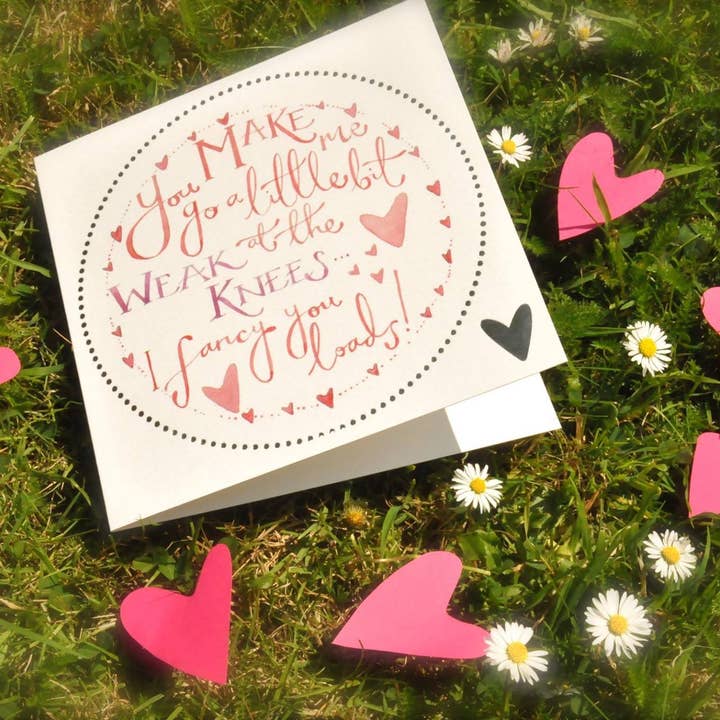 You MAKE me
go a little bit
at the
WEAK
KNEES...
I fancy you
loads!